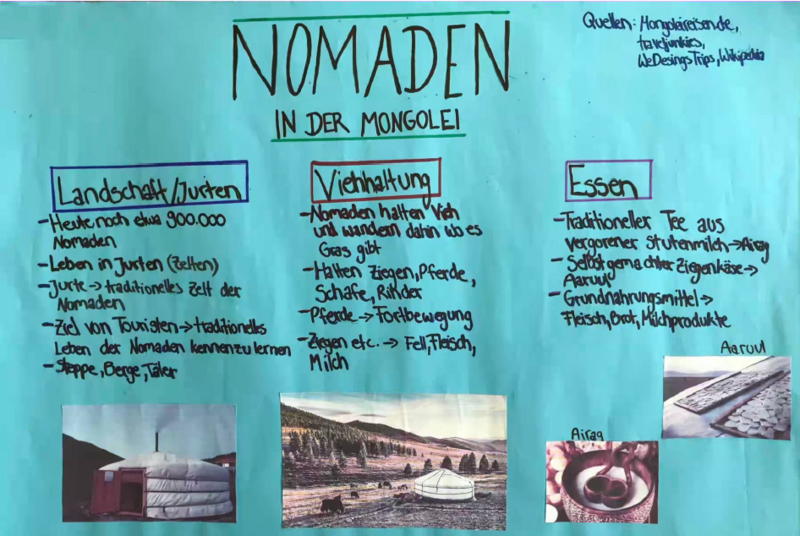 NOMADEN
IN DER MONGOLEI
Quellen: Mongoleireisen.de,
traveljunkies,
WeDesingsTrips, Wikipedia
Landschaft/Jurten
-Heute noch etwa 900.000
Nomaden
-Leben in Jurten (Zelten)
-Jurte→traditionelles Zelt der
Nomaden
-Ziel von Touristen→traditionelles
Leben der Nomaden kennenzulernen
-Steppe, Berge, Täler
Viehhaltung
-Nomaden halten Vieh
und wandern dahin wo es
Gras gibt
-Halten Ziegen, Pferde,
Schafe, Rinder
-Pferde→Fortbewegung
-Ziegen etc.→Fell, Fleisch,
Milch
Essen
-Traditioneller Tee aus
vergorener Stutenmilch→Airag
-Selbstgemachter Ziegenkäse→
Aaruul
-Grundnahrungsmittel→
Fleisch, Brot, Milchprodukte
Aaruul
Airag